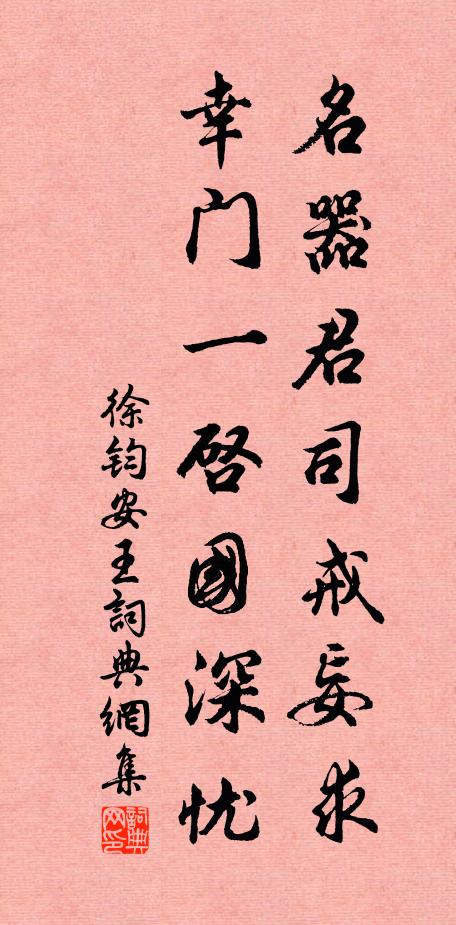 名器君司戒妄求
幸门一启國深忧
徐钧安王詞典網集
詞典网印